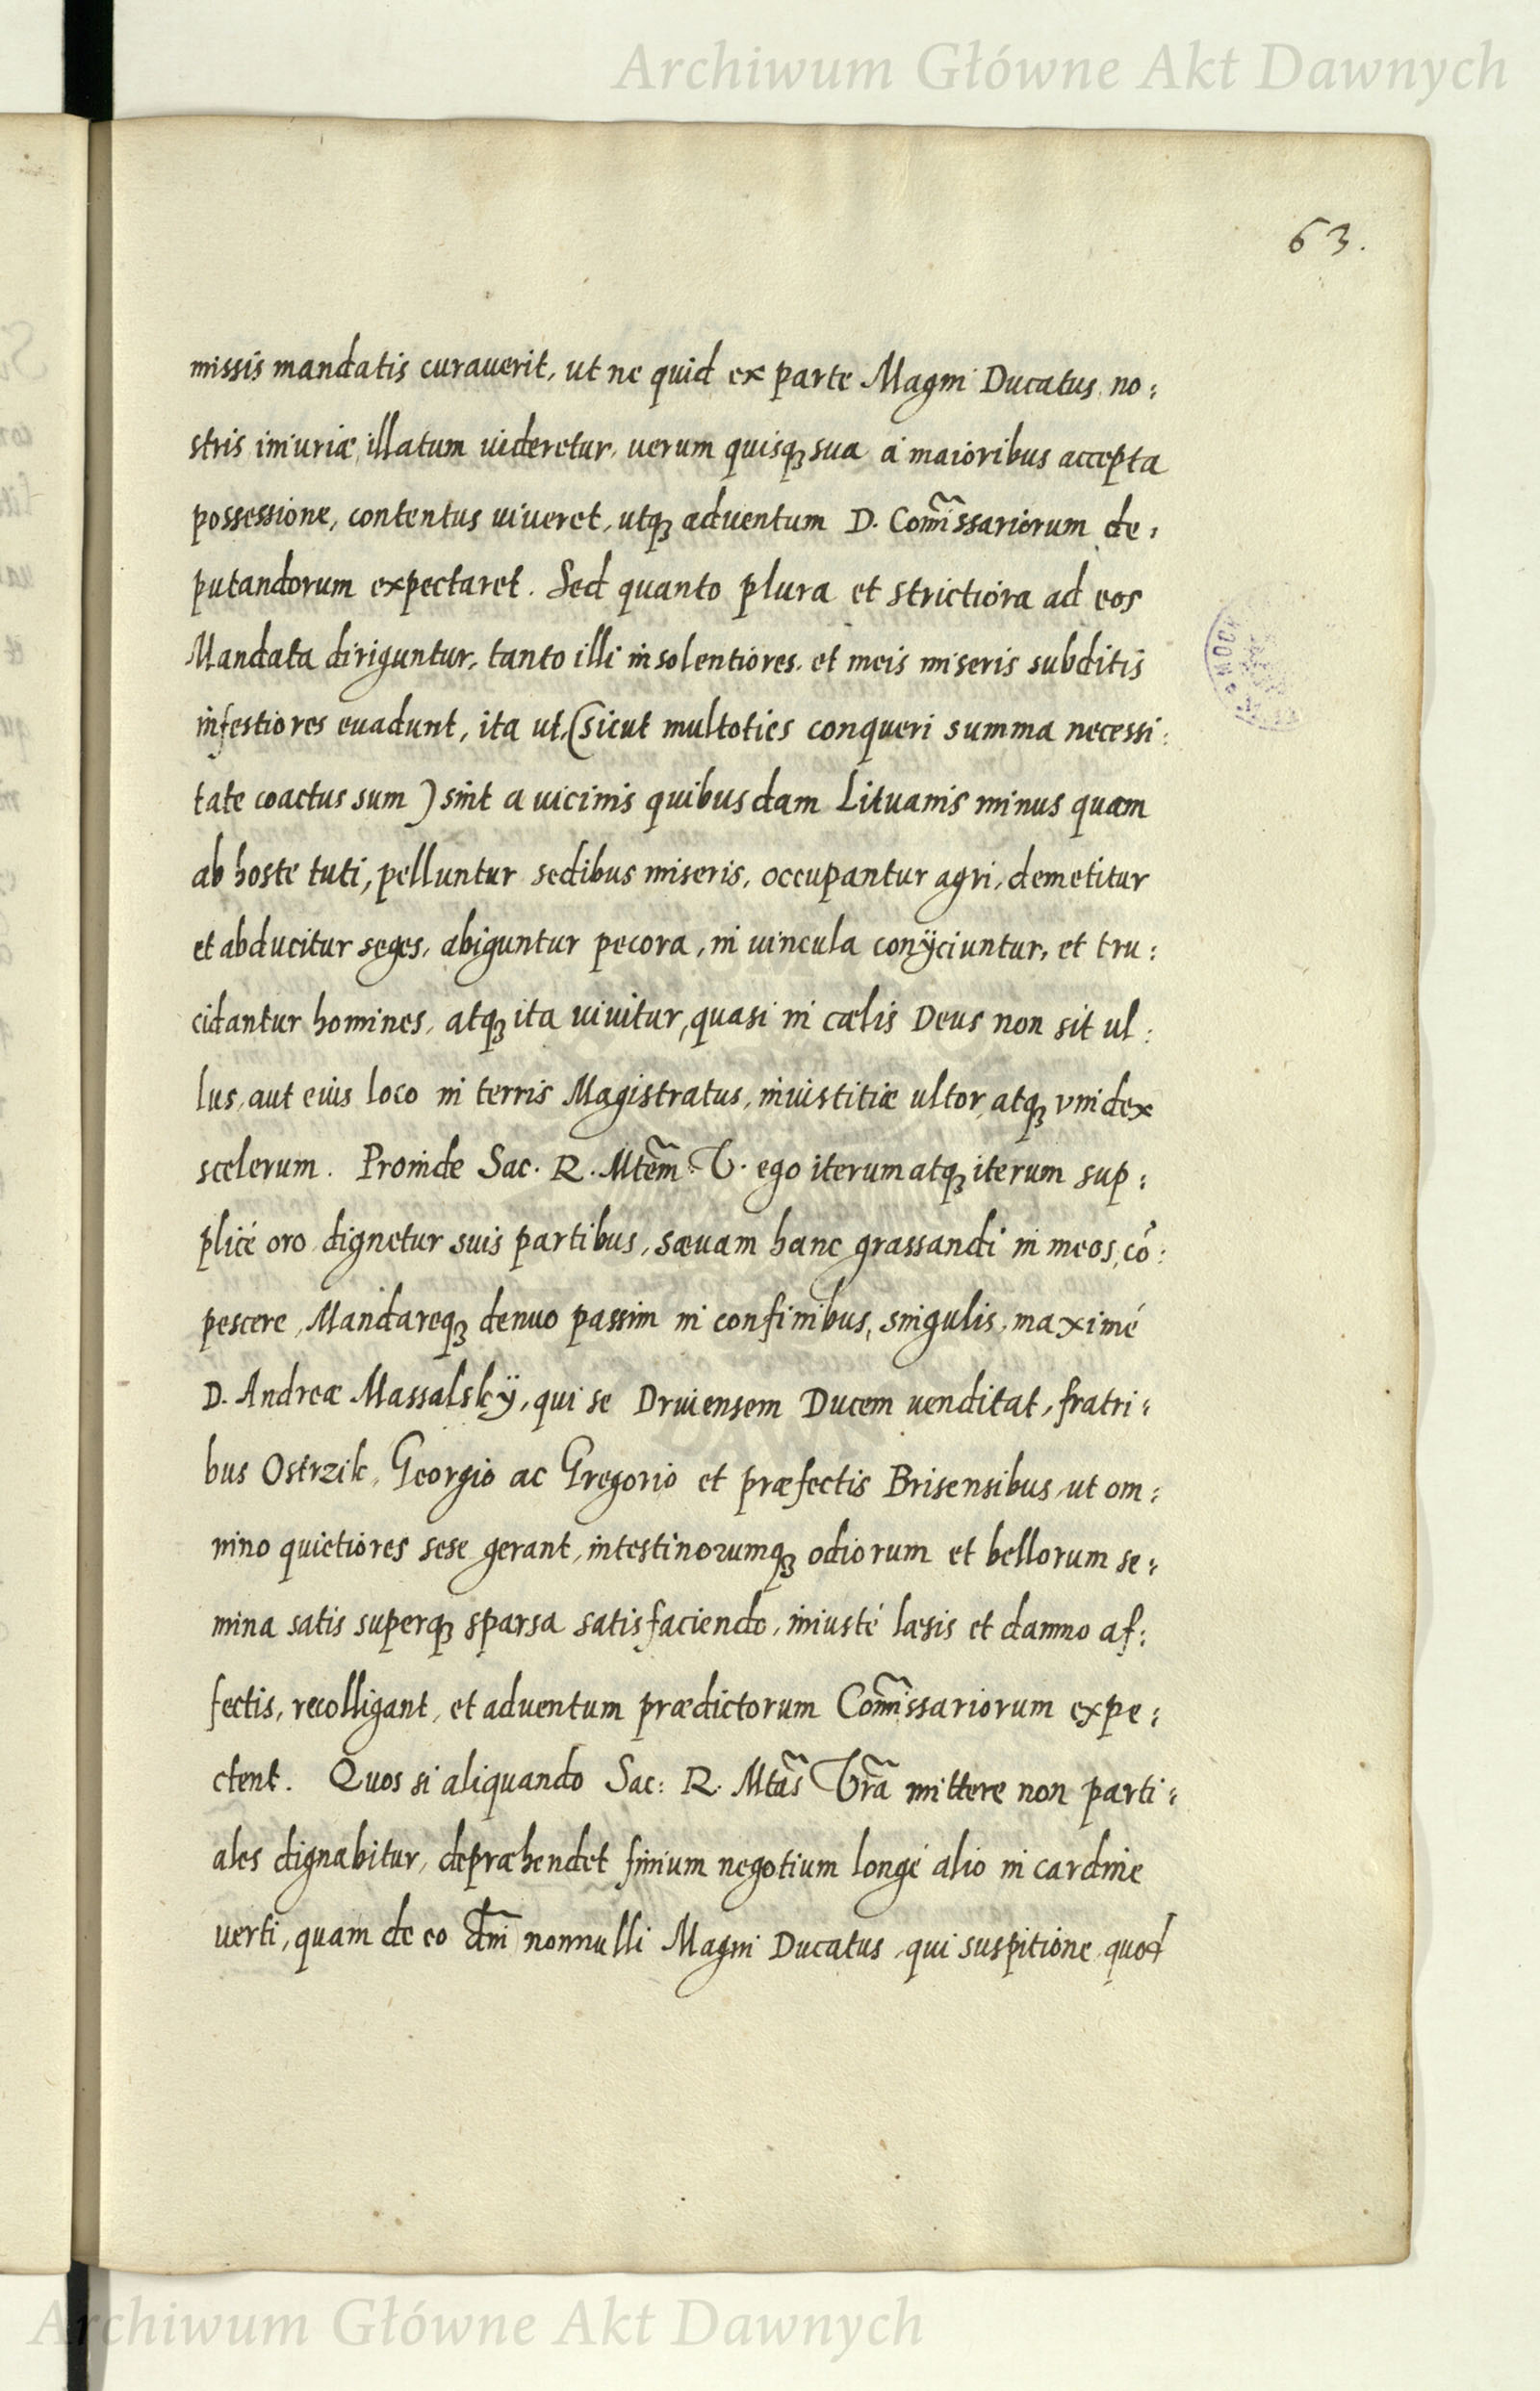 Archiwum Główne Akt Dawnych
63.
missis mandatis curauerit, ut ne quid ex parte Magni Ducatus no:
stris iniuriæ illatum uideretur, uerum quisqꝫ sua á maioribus accepta
possessione, contentus uiueret, utqꝫ aduentum D. Com̃issariorum de:
putandorum expectaret. Sed quanto plura et strictiora ad eos
Mandata diriguntur, tanto illi insolentiores, et meis miseris subditis
infestiores euadunt, ita ut, (sicut multoties conqueri summa necessi:
tate coactus sum) sint a uicinis quibusdam Lituanis minus quam
ab hoste tuti, pelluntur sedibus miseris, occupantur agri, demetitur
et abducitur seges, abiguntur pecora, in uincula conÿciuntur, et tru:
cidantur homines, atqꝫ ita uiuitur, quasi in cælis Deus non sit ul:
lus, aut eius loco in terris Magistratus, iniustitiæ ultor, atqꝫ vindex
scelerum. Proinde Sac. R. Mtem̃ V. ego iterum atqꝫ iterum sup:
plicé oro dignetur suis partibus, sæuam hanc grassandi in meos, cõ:
pescere, Mandareqꝫ denuo passim in confinibus, singulis, maximé
D. Andreæ Massalskÿ, qui se Druiensem Ducem uenditat, fratri:
bus Ostrzik, Georgio ac Gregorio et præfectis Brisensibus, ut om:
nino quietiores sese gerant, intestinorumqꝫ odiorum et bellorum se:
mina satis superqꝫ sparsa satisfaciendo, iniusté læsis et damno af:
fectis, recolligant, et aduentum prædictorum Com̃issariorum expe:
ctent. Quos si aliquando Sac: R. Mtãs Vrã mittere non parti:
ales dignabitur, depræhendet finium negotium longé alio in cardine
uerti, quam de eo dñi nonnulli Magni Ducatus, qui suspitione, quod
Archiwum Główne Akt Dawnych